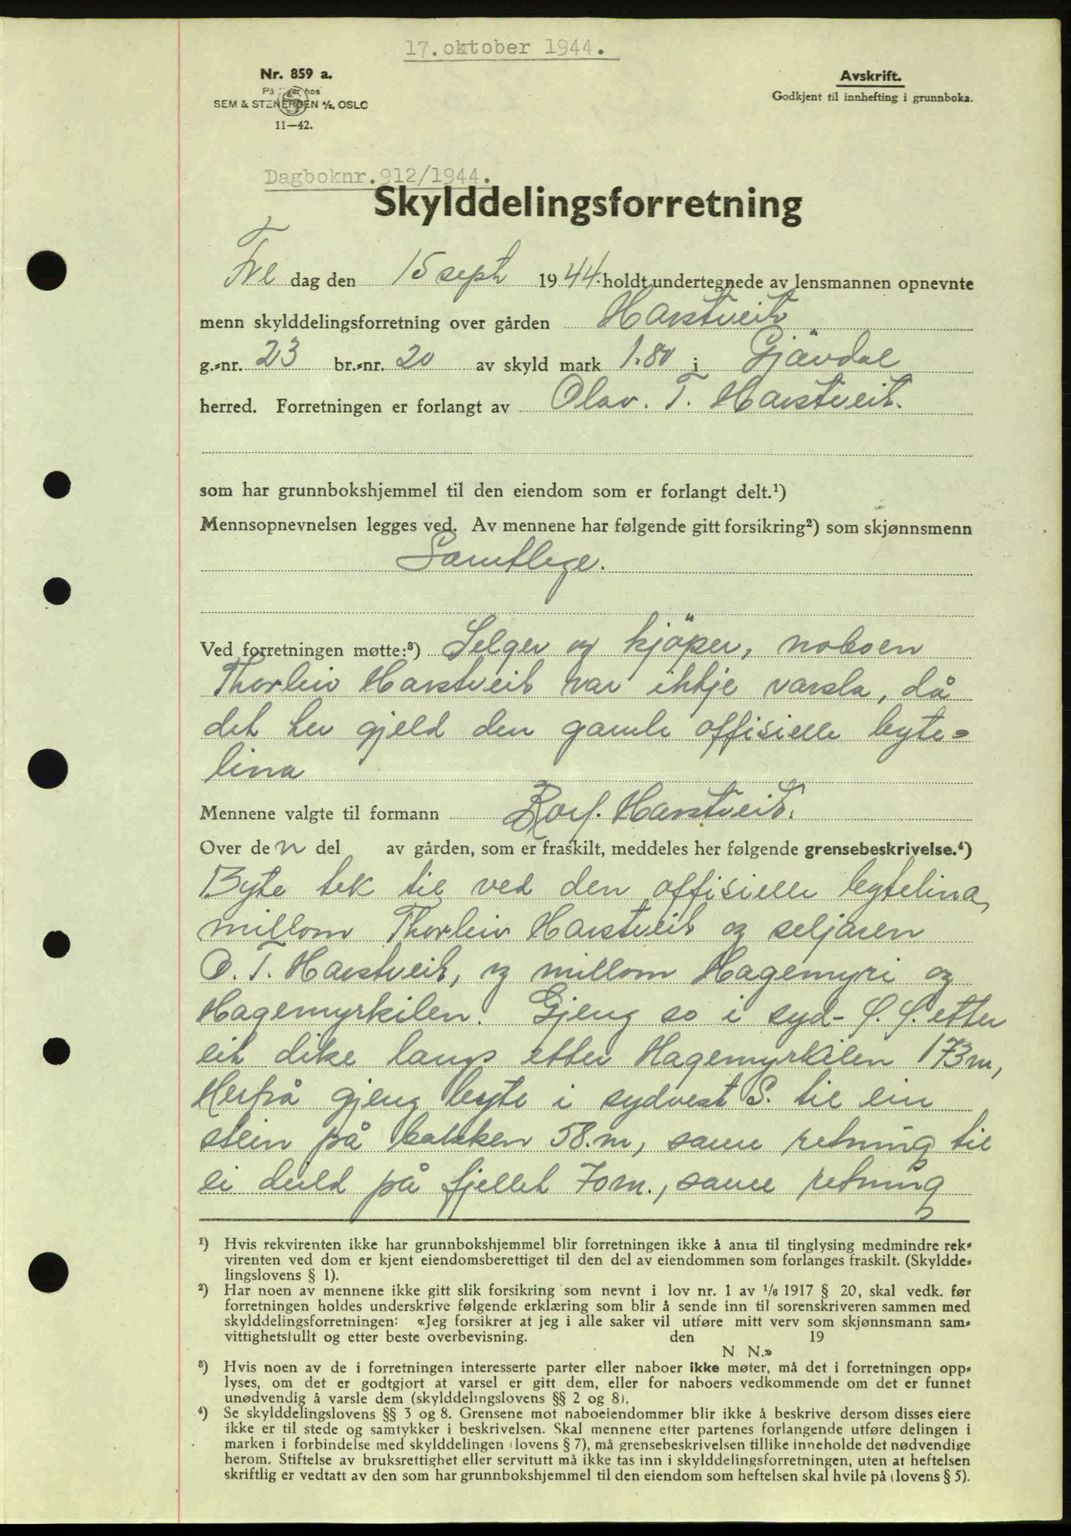 17. oktober 1944.
Nr. 859 a.
SEM & STENERSEN A/S, OSLO
11—42.
Avskrift.
Godkjent til innhefting i grunnboka.
Dagboknr. 912/1944.
Skylddelingsforretning
Fre dag den 15 sept 1944. holdt undertegnede av lensmannen opnevnte
menn skylddelingsforretning over gården Harstveit
g.-nr. 23 br.-nr. 20 av skyld mark 1.80 i Gjövdal
herred. Forretningen er forlangt av Olav. T. Harstveit.
som har grunnbokshjemmel til den eiendom som er forlangt delt.¹)
Mennsopnevnelsen legges ved. Av mennene har følgende gitt forsikring²) som skjønnsmenn
Samtlege.
Ved forretningen møtte:³) Selger og kjöper, naboen
Thorleiv Harstveit var ikkje varsla, då
det her gjeld den gamle offisielle byte-
lina
Mennene valgte til formann Harstveit.
Over den del av gården, som er fraskilt, meddeles her følgende grensebeskrivelse.⁴)
Byte tek til ved den offisielle bytelina,
millom Thorleiv Harstveit og seljaren
O. T. Harstveit, og millom Hagemyri og
Hagemyrkilen. Gjeng so i syd- etter
eit dike langs etter Hagemyrkilen 173 m,
Herfrå gjeng byte i sydvest S. til ein
stein på bakken 58. m, same retning til
ei duld på fjellet 70 m., same retning
¹) Hvis rekvirenten ikke har grunnbokshjemmel blir forretningen ikke å anta til tinglysing medmindre rek-
virenten ved dom er kjent eiendomsberettiget til den del av eiendommen som forlanges fraskilt. (Skyldde-
lingslovens § 1).
²) Har noen av mennene ikke gitt slik forsikring som nevnt i lov nr. 1 av 1/6 1917 § 20, skal vedk. før
forretningen holdes underskrive følgende erklæring som blir å sende inn til sorenskriveren sammen med
skylddelingsforretningen: «Jeg forsikrer at jeg i alle saker vil utføre mitt verv som skjønnsmann sam-
vittighetsfullt og etter beste overbevisning. den 19
N N.»
³) Hvis noen av de i forretningen interesserte parter eller naboer ikke møter, må det i forretningen opp-
lyses, om det er godtgjort at varsel er gitt dem, eller for naboers vedkommende om det er funnet
unødvendig å varsle dem (skylddelingslovens §§ 2 og 8).
⁴) Se skylddelingslovens §§ 3 og 8. Grensene mot naboeiendommer blir ikke å beskrive dersom disses eiere
ikke er til stede og samtykker i beskrivelsen. Skal mennene etter partenes forlangende utføre delingen i
marken i forbindelse med skylddelingen (lovens § 7), må grensebeskrivelsen tillike inneholde det nødvendige
herom. Stiftelse av bruksrettighet eller servitutt må ikke tas inn i skylddelingsforretningen, uten at heftelsen
skriftlig er vedtatt av den som har grunnbokshjemmel til den eiendom som heftelsen skal hvile på (lovens § 5).